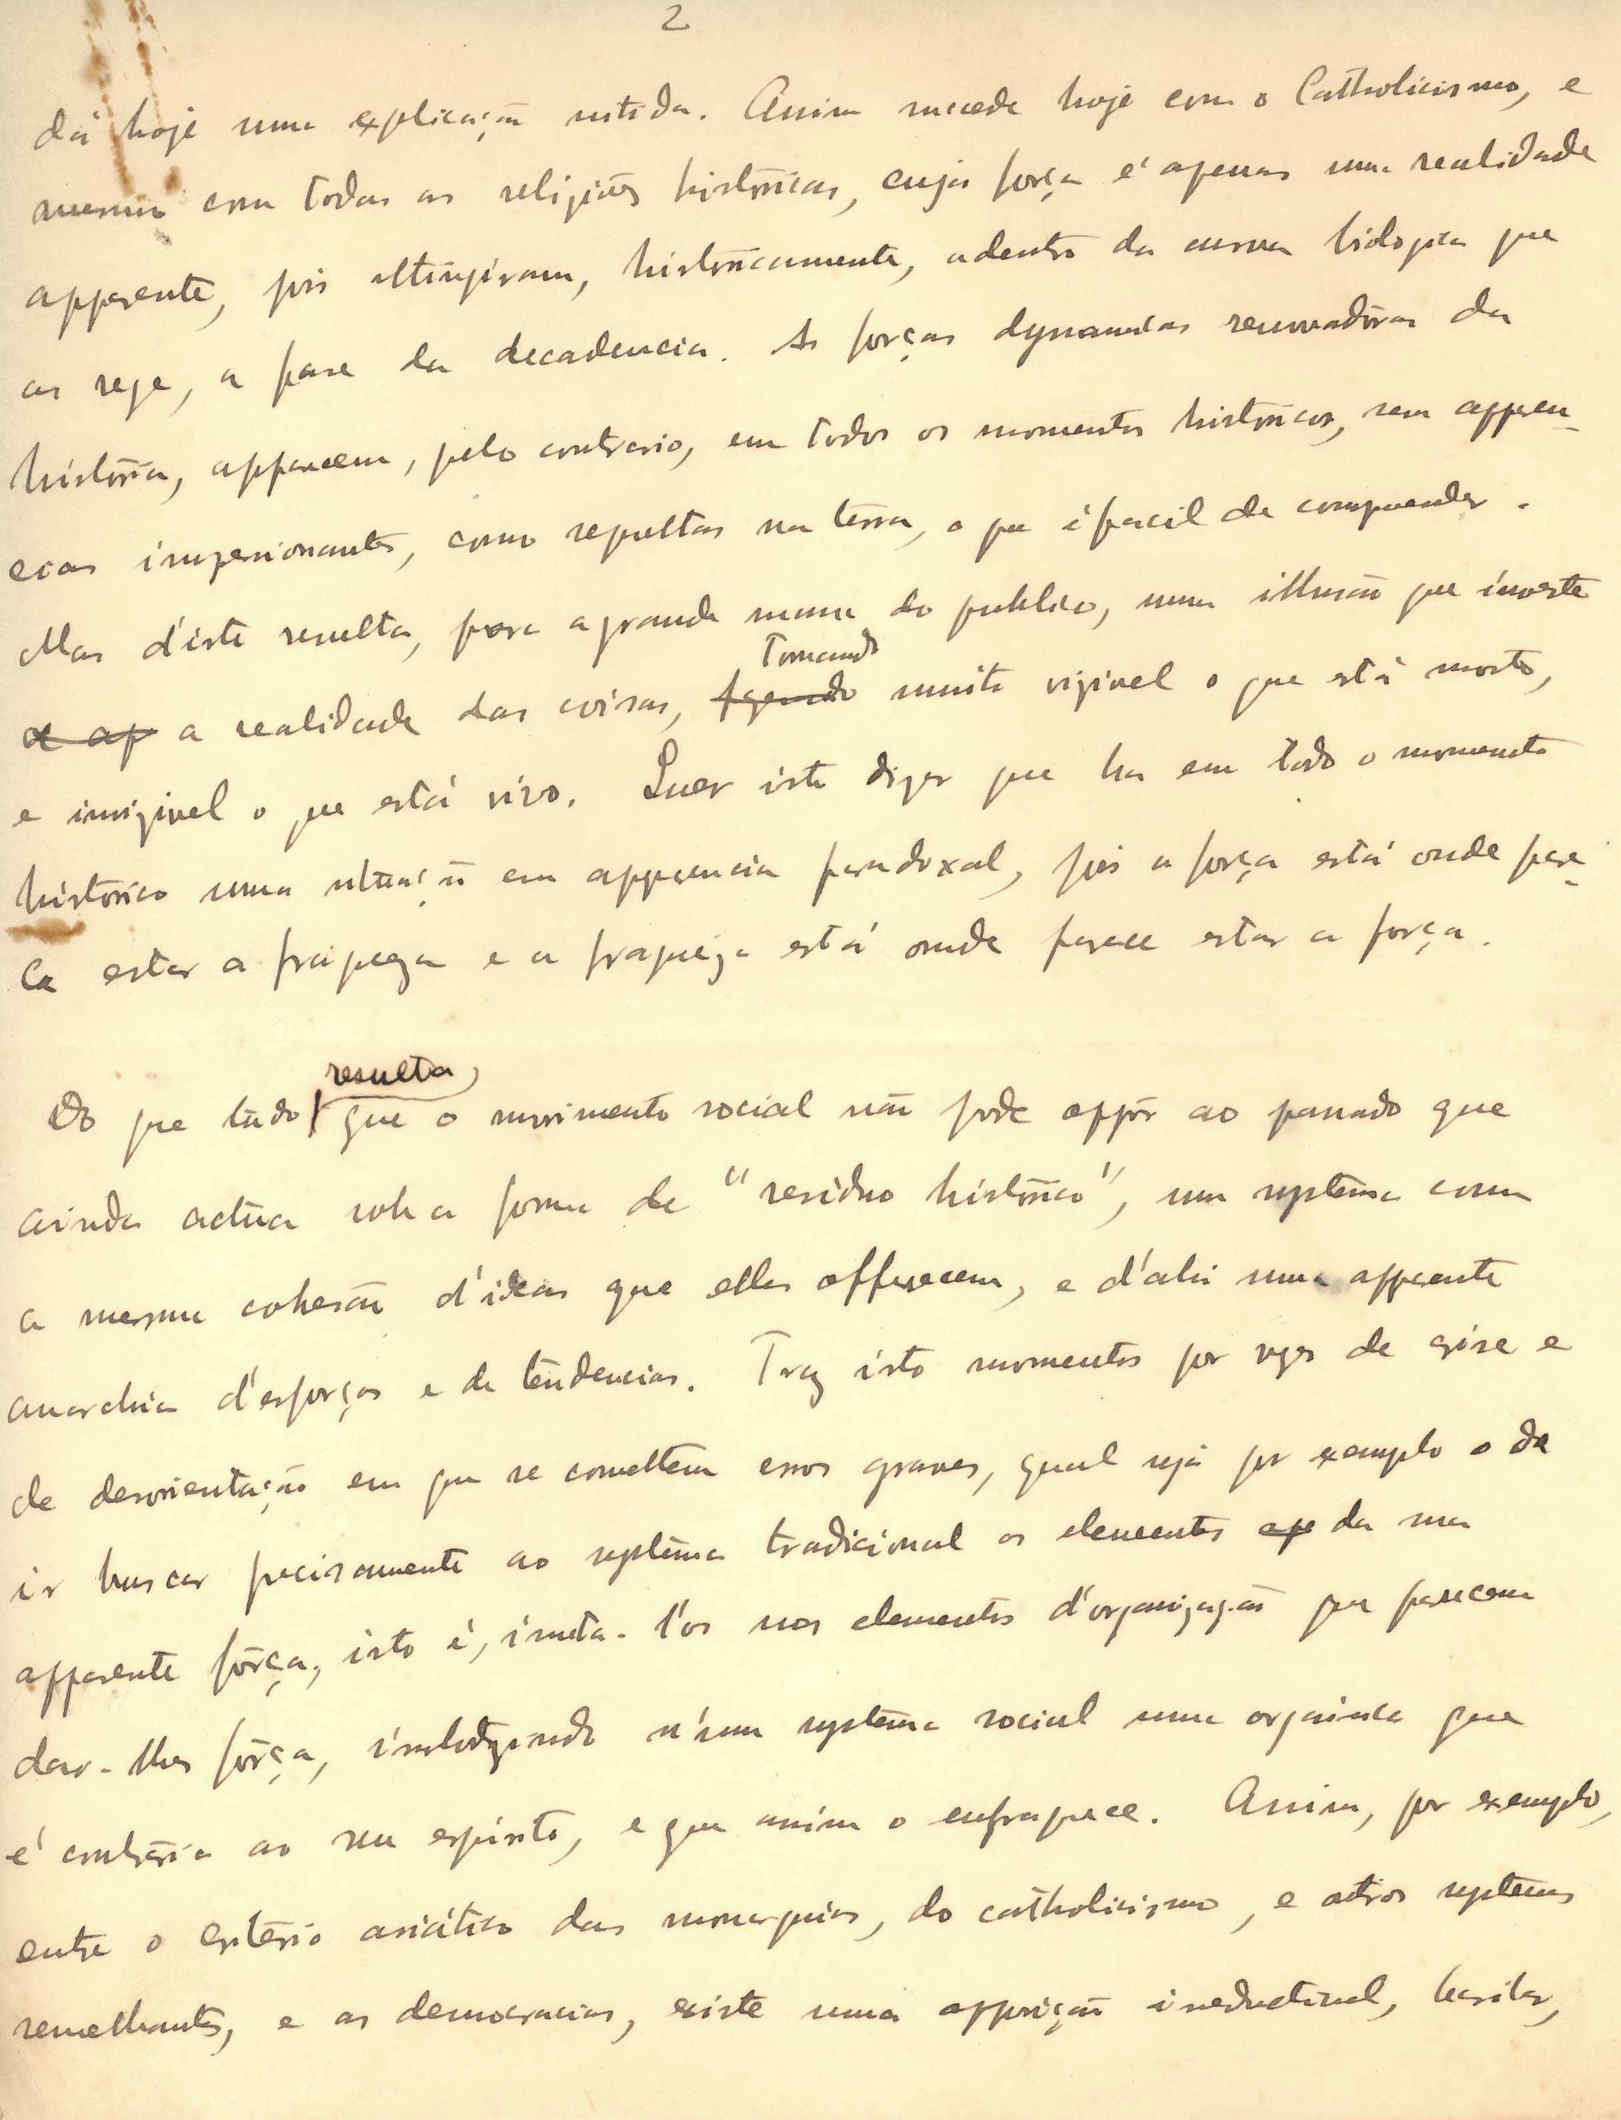 2
dá hoje uma explicação nitida. Assim succede hoje com o Catholicismo, e
mesmo com todas as religiões históricas, cuja força é apenas uma realidade
apparente, pois attingiram, históricamente, adentro da curva biologica que
as rege, a fase da decadencia. As forças dynamicas renovadôras da
história, apparecem, pelo contrario, em todos os momentos históricos, sem apparen-
cias impressionantes, como sepultas na terra, o que é facil de comprehender.
Mas d'isto resulta, para a grande massa do publico, uma illusão que inverte
Tornando
a ap a realidade das coisas, fazendo muito vizivel o que está morto,
e invizivel o que está vivo. Quer isto dizer que ha em todo o momento
histórico uma situação em apparencia paradoxal, pois a força está onde pare-
ce estar a fraqueza e a fraqueza está onde parece estar a força.
resulta,
Do que tudo que o movimento social não pode oppôr ao passado que
ainda actúa sob a forma de "residuo histórico", um systema com
a mesma cohesão d'ideas que elles offerecem, e d'ahi uma apparente
anarchia d'esforços e de tendencias. Traz isto momentos por vezes de crise e
de desorientação em que se comettem erros graves, qual seja por exemplo o de
ir buscar precisamente ao systema tradicional os elementos da sua
apparente fôrça, isto é, imita-l'os nos elementos d'organização que parecem
dar-lhes fôrça, n'um systema social uma organica que
é contrária ao seu espirito, e que assim o enfraquece. Assim, por exemplo,
entre o critério asiático das monarquias, do catholicismo, e outros systemas
semelhantes, e as democracias, existe uma opposição irreductivel, basilar,